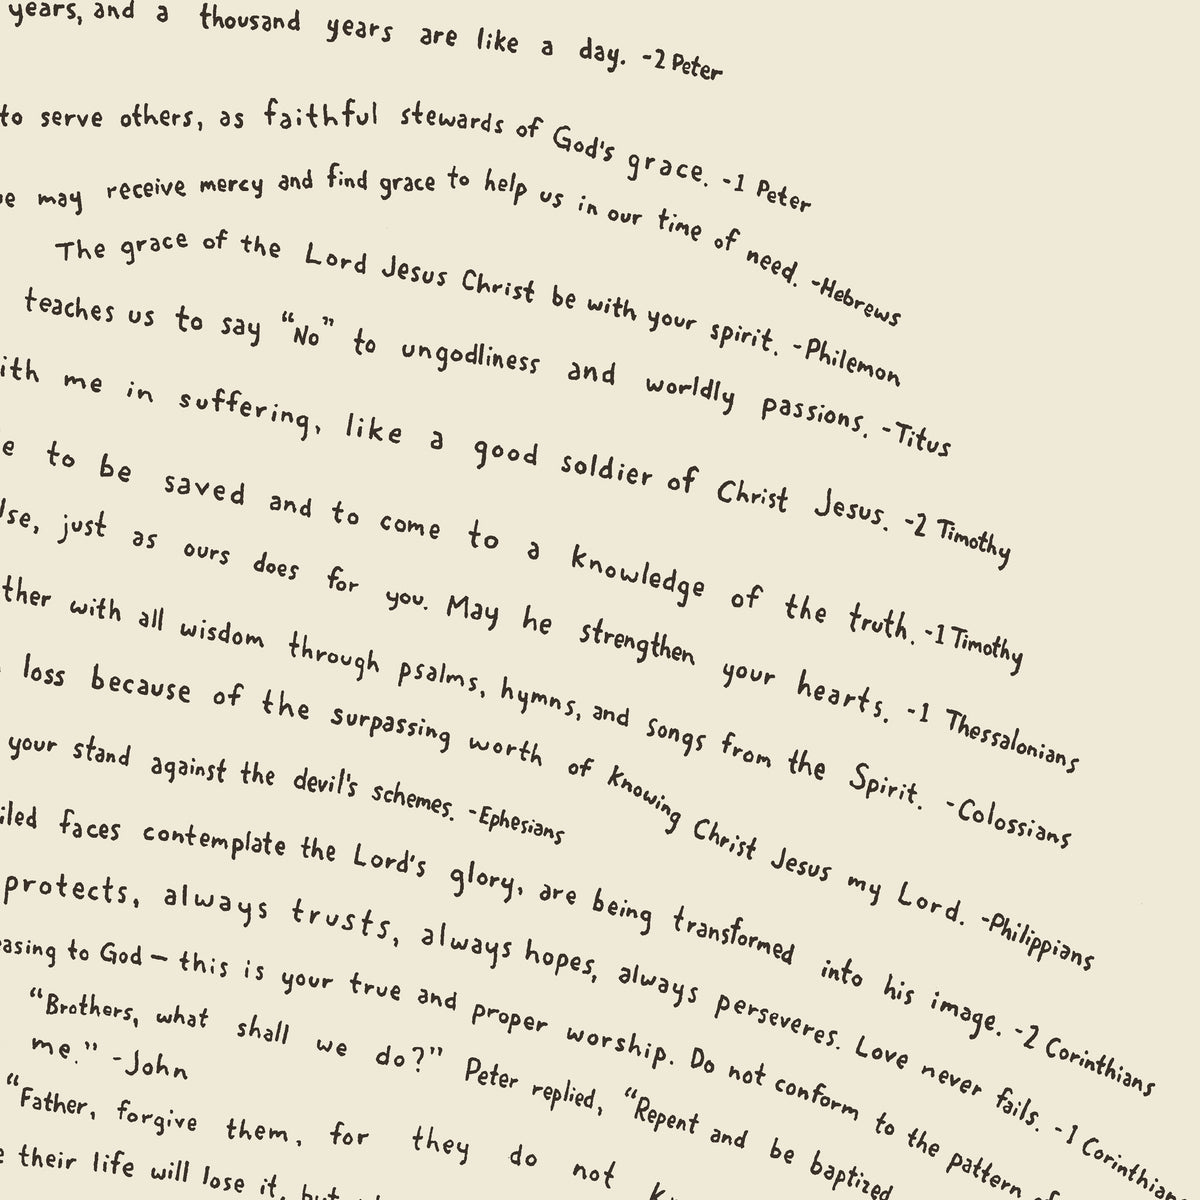 years, and a thousand years are like a day. -2 Peter
to serve others, as faithful stewards of God's grace. -1 Peter
may receive mercy and find grace to help us in our time of need. -Hebrews
The grace of the Lord Jesus Christ be with your spirit. -Philemon
teaches us to say “No” to ungodliness and worldly passions. -Titus
ith me in suffering, like a good soldier of Christ Jesus. -2 Timothy
e to be saved and to come to a knowledge of the truth. -1 Timothy
lse, just as ours does for you. May he strengthen your hearts. -1 Thessalonians
ther with all wisdom through psalms, hymns, and songs from the Spirit. -Colossians
loss because of the surpassing worth of knowing Christ Jesus my Lord. -Philippians
your stand against the devil's schemes. -Ephesians
iled faces contemplate the Lord's glory, are being transformed into his image. -2 Corinthians
protects, always trusts, always hopes, always perseveres. Love never fails. -1 Corinthian
asing to God – this is your true and proper worship. Do not conform to the pattern
“Brothers, what shall we do?” Peter replied, “Repent and be baptized
me.” -John
“Father, forgive them, for they do not
their life will lose it,